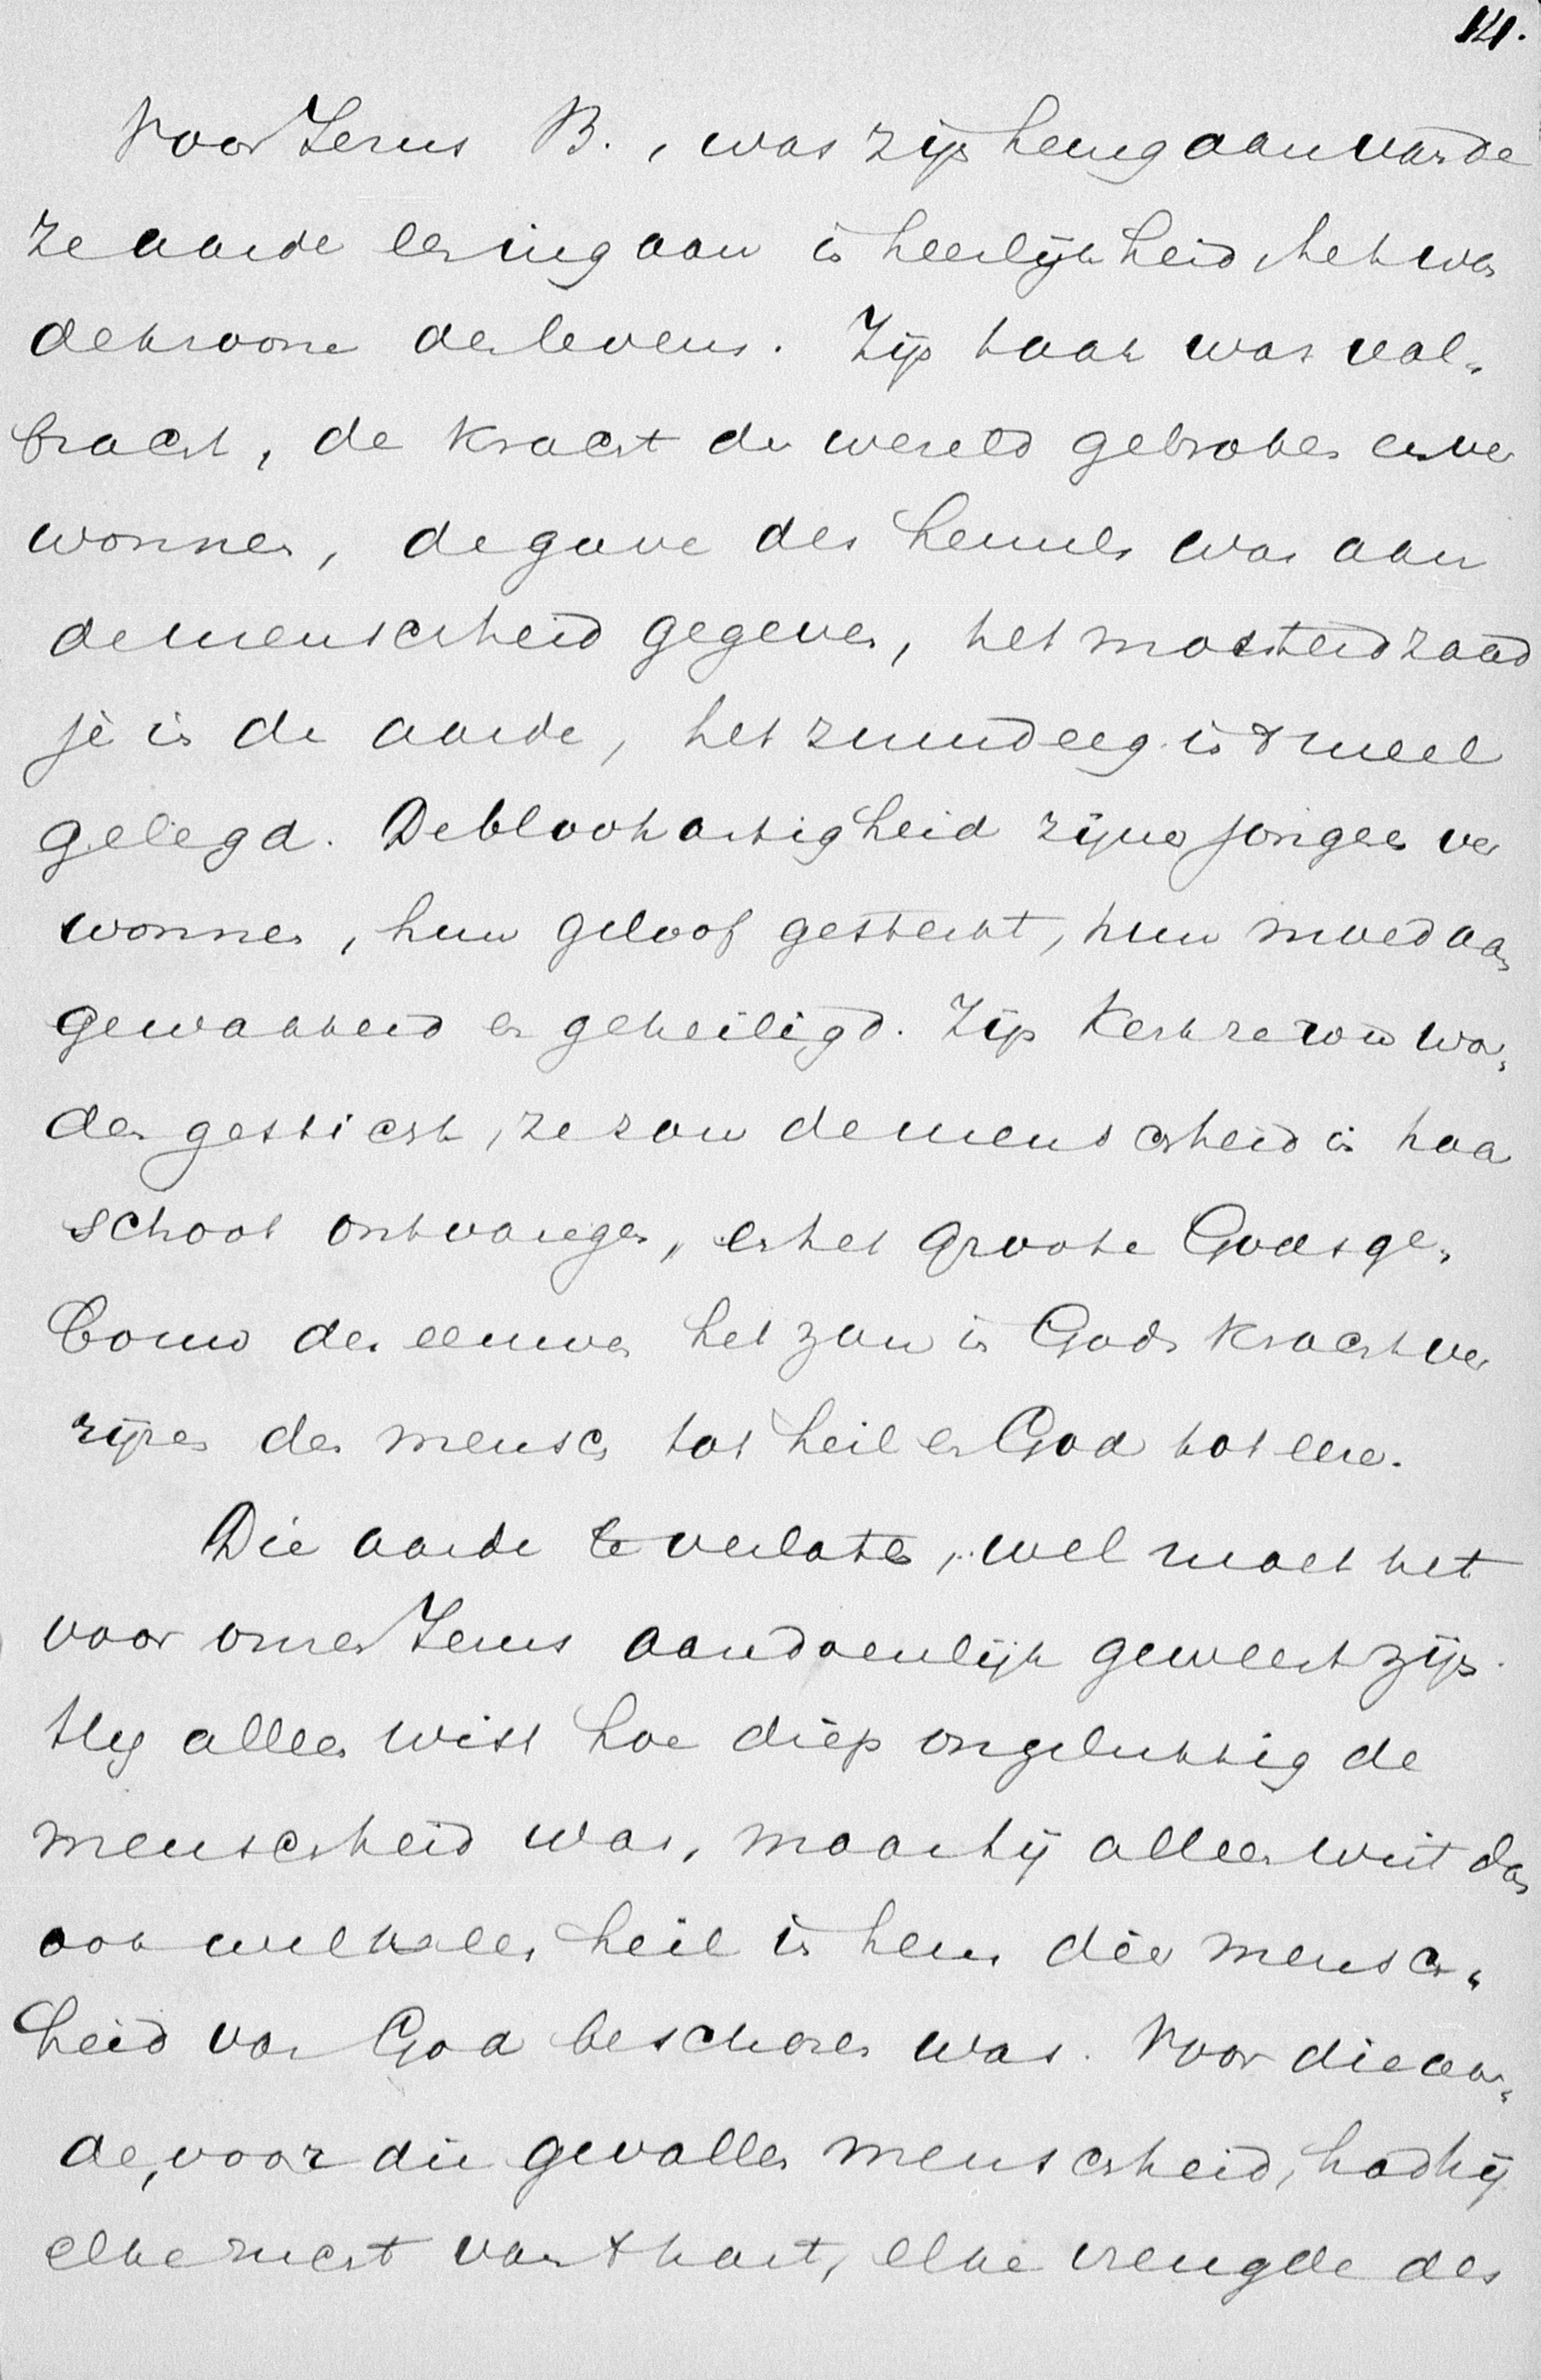 14.
Voor Jezus B., was zijn heengaan van de
ze aarde een ingaan in heerlijkheid, het was
de kroone des levens. Zijn taak was vol„
bracht, de kracht der wereld gebroken en over
wonnen, de gave des hemels was aan
de menscheid gegeven, het mosterdzaad
je in de aarde, het zuurdeeg in 't meel
gelegd. De bloohartigheid zijner jongeren ver
wonnen, hun geloof gesterkt, hun moed aan
gewakkerd en geheiligd. Zijn Kerk ze zou wor„
den gesticht, ze zou de menscheid in haar
schoot ontvangen, en het groote Godsge„
bouw der eeuwen het zou in Gods kracht ver
rijzen den mensch tot heil en God tot eere.
Die aarde te verlaten, wel moet het
voor onzen Jezus aandoenlijk geweest zijn.
Hij alleen wist hoe diep ongelukkig de
menscheid was, maar hij alleen wist dan
ook welk een heil in hem dier mensch„
heid van God beschoren was. Voor die aar„
de, voor die gevallen menscheid, had hij
elke zucht van 't hart, elke vreugde des